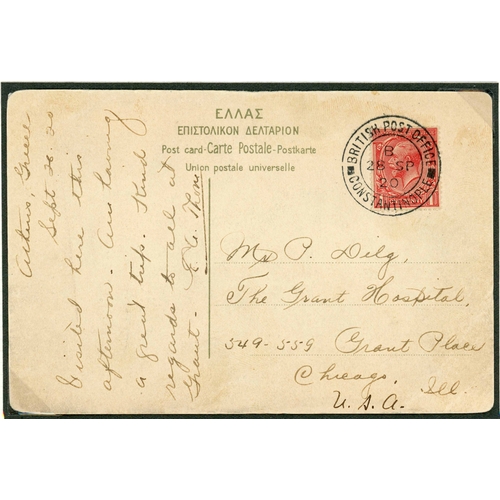 ΕΛΛΑΣ
ΕΠΙΣΤΟΛΙΚΟΝ ΔΕΛΤΑΡΙΟΝ
Post card-Carte Postale-Postkarte
Union postale universelle
BRITISH POST OFFICE
B
28 SP
20
CONSTANTINOPLE
Athens, Greece
Sept 26. 20
Visited here this
afternoon. Am having
a great trip. Kind
regards to all at
Grant- E. G.
Ms P. Dilg,
The Grant Hospital,
549-559 Grant Place
Chicago, Ill.
U.S.A.